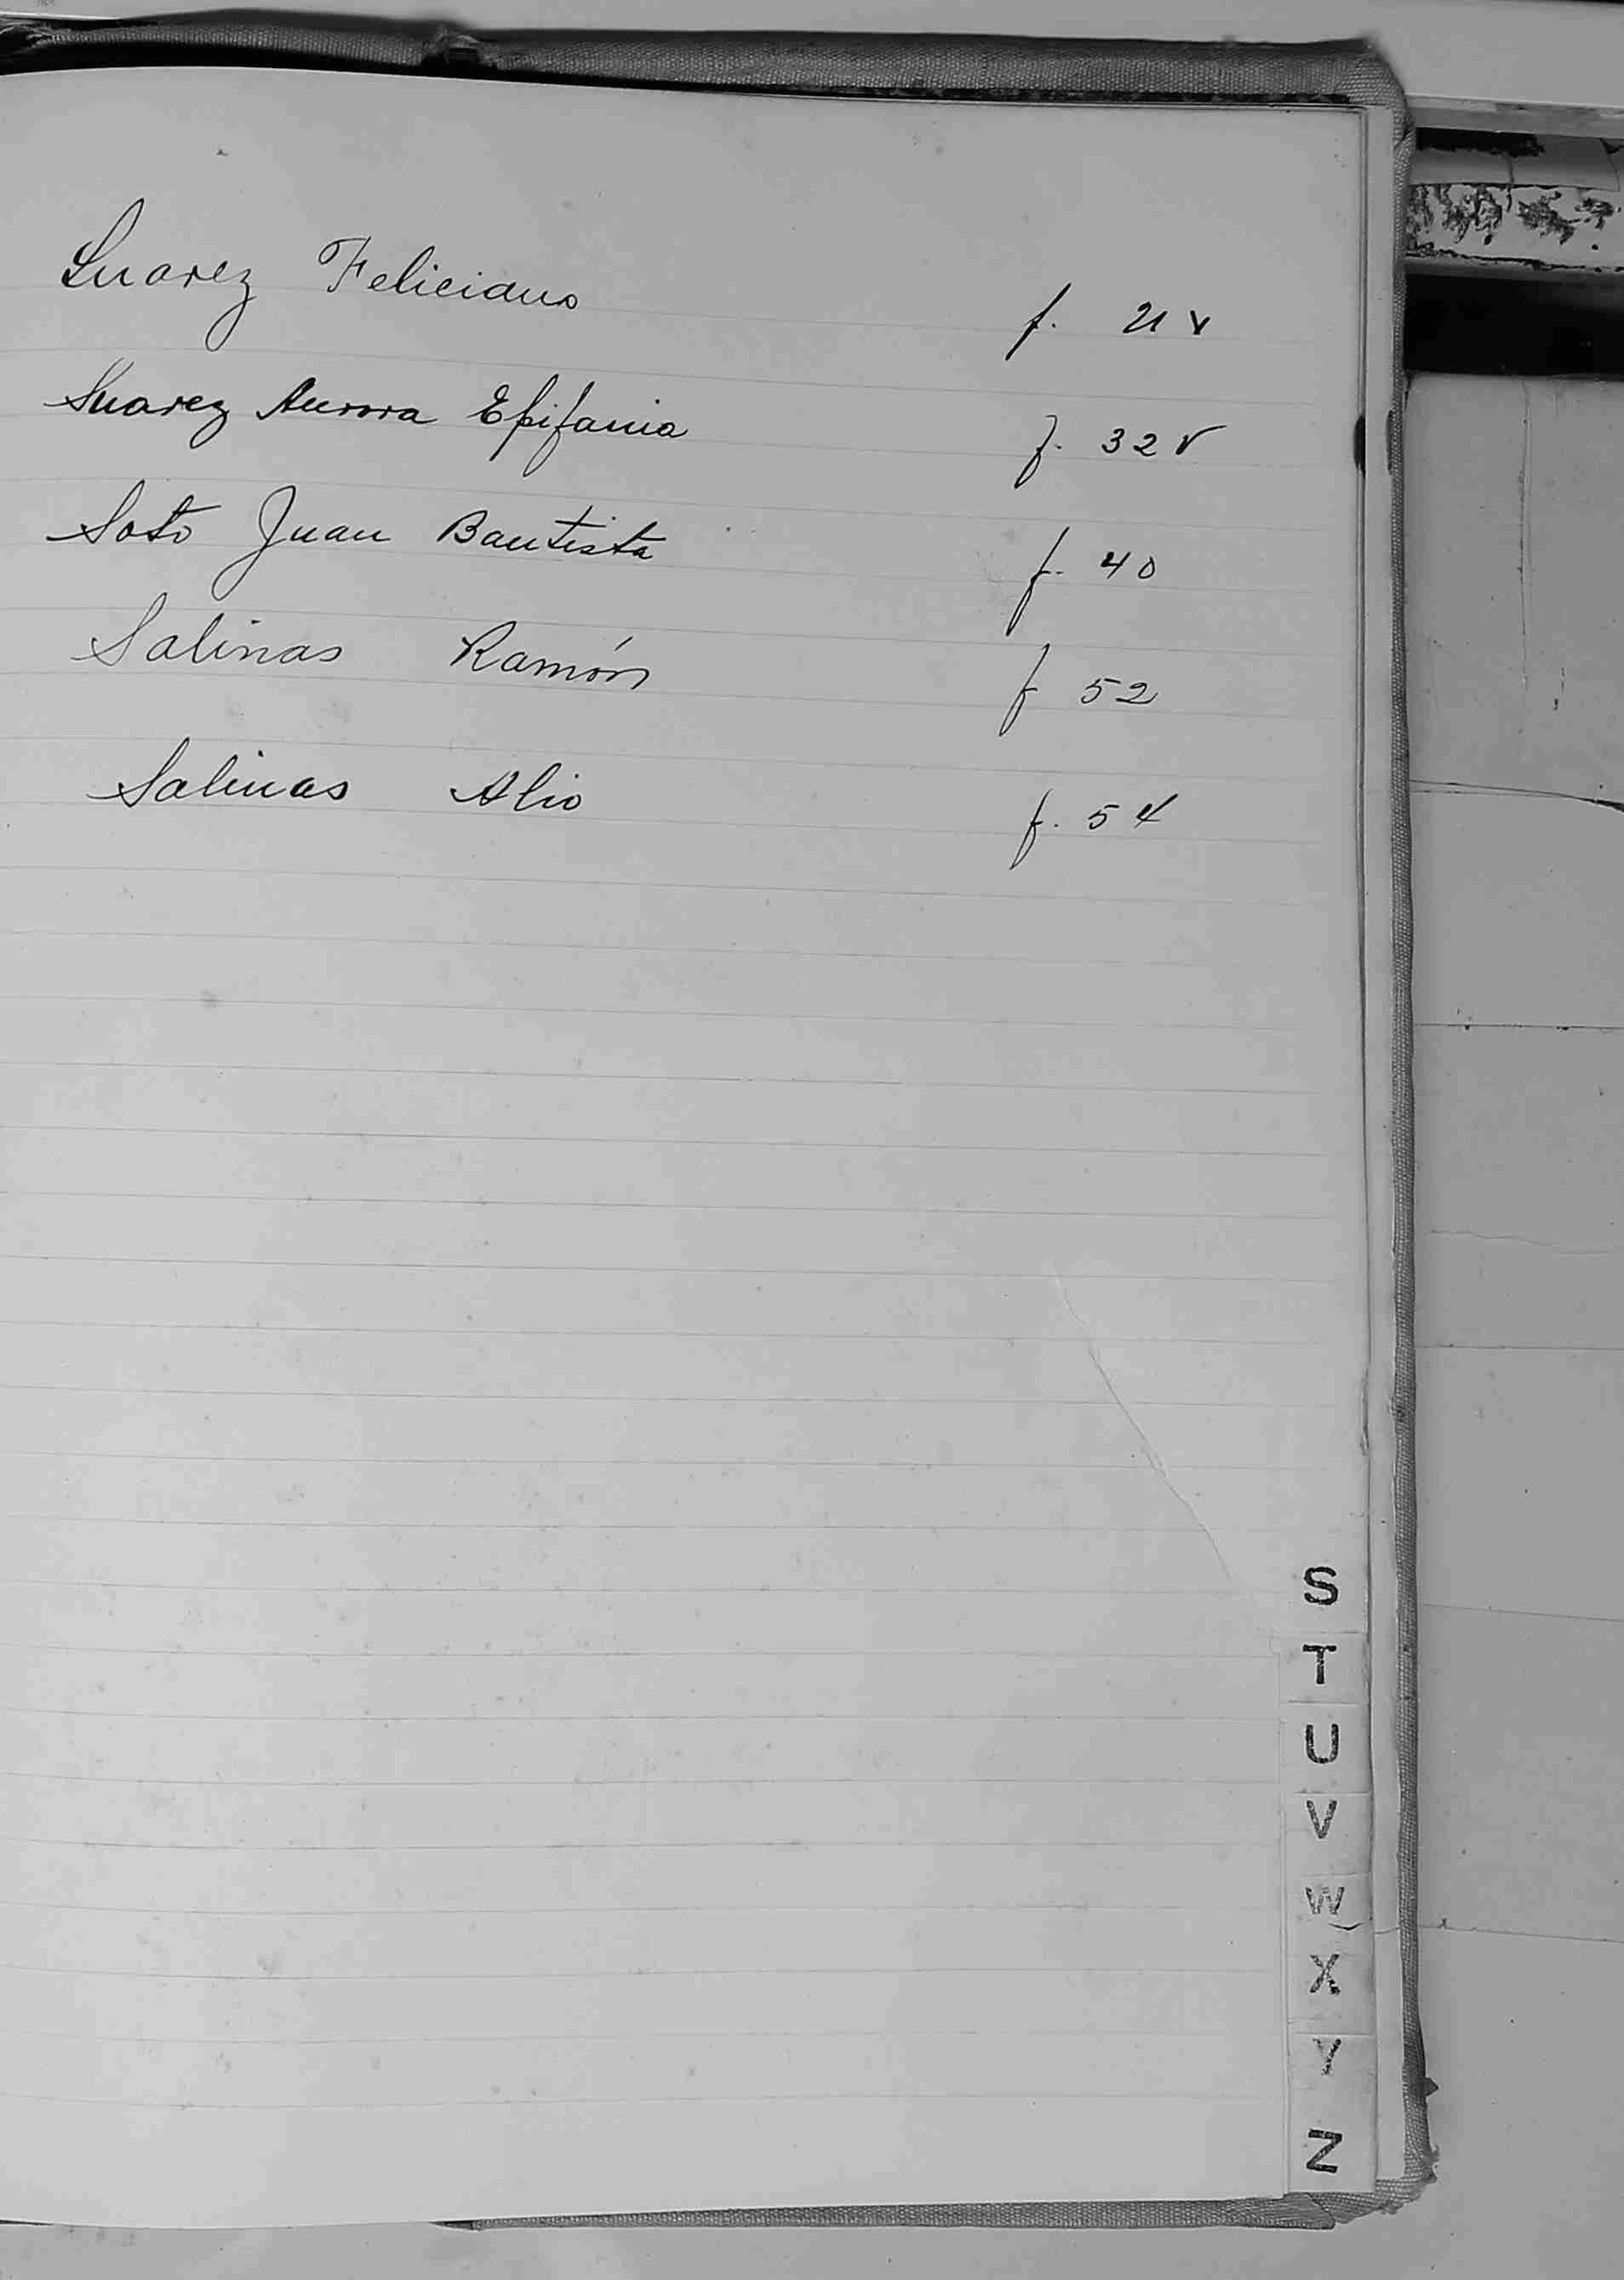 Suarez Feliciano f. 21 v
Suarez Aurora Epifania f. 32 v
Soto Juan Bautista f. 40
Salinas Ramón f 52
Salinas Alio f. 54
S
T
U
V
W
X
Y
Z